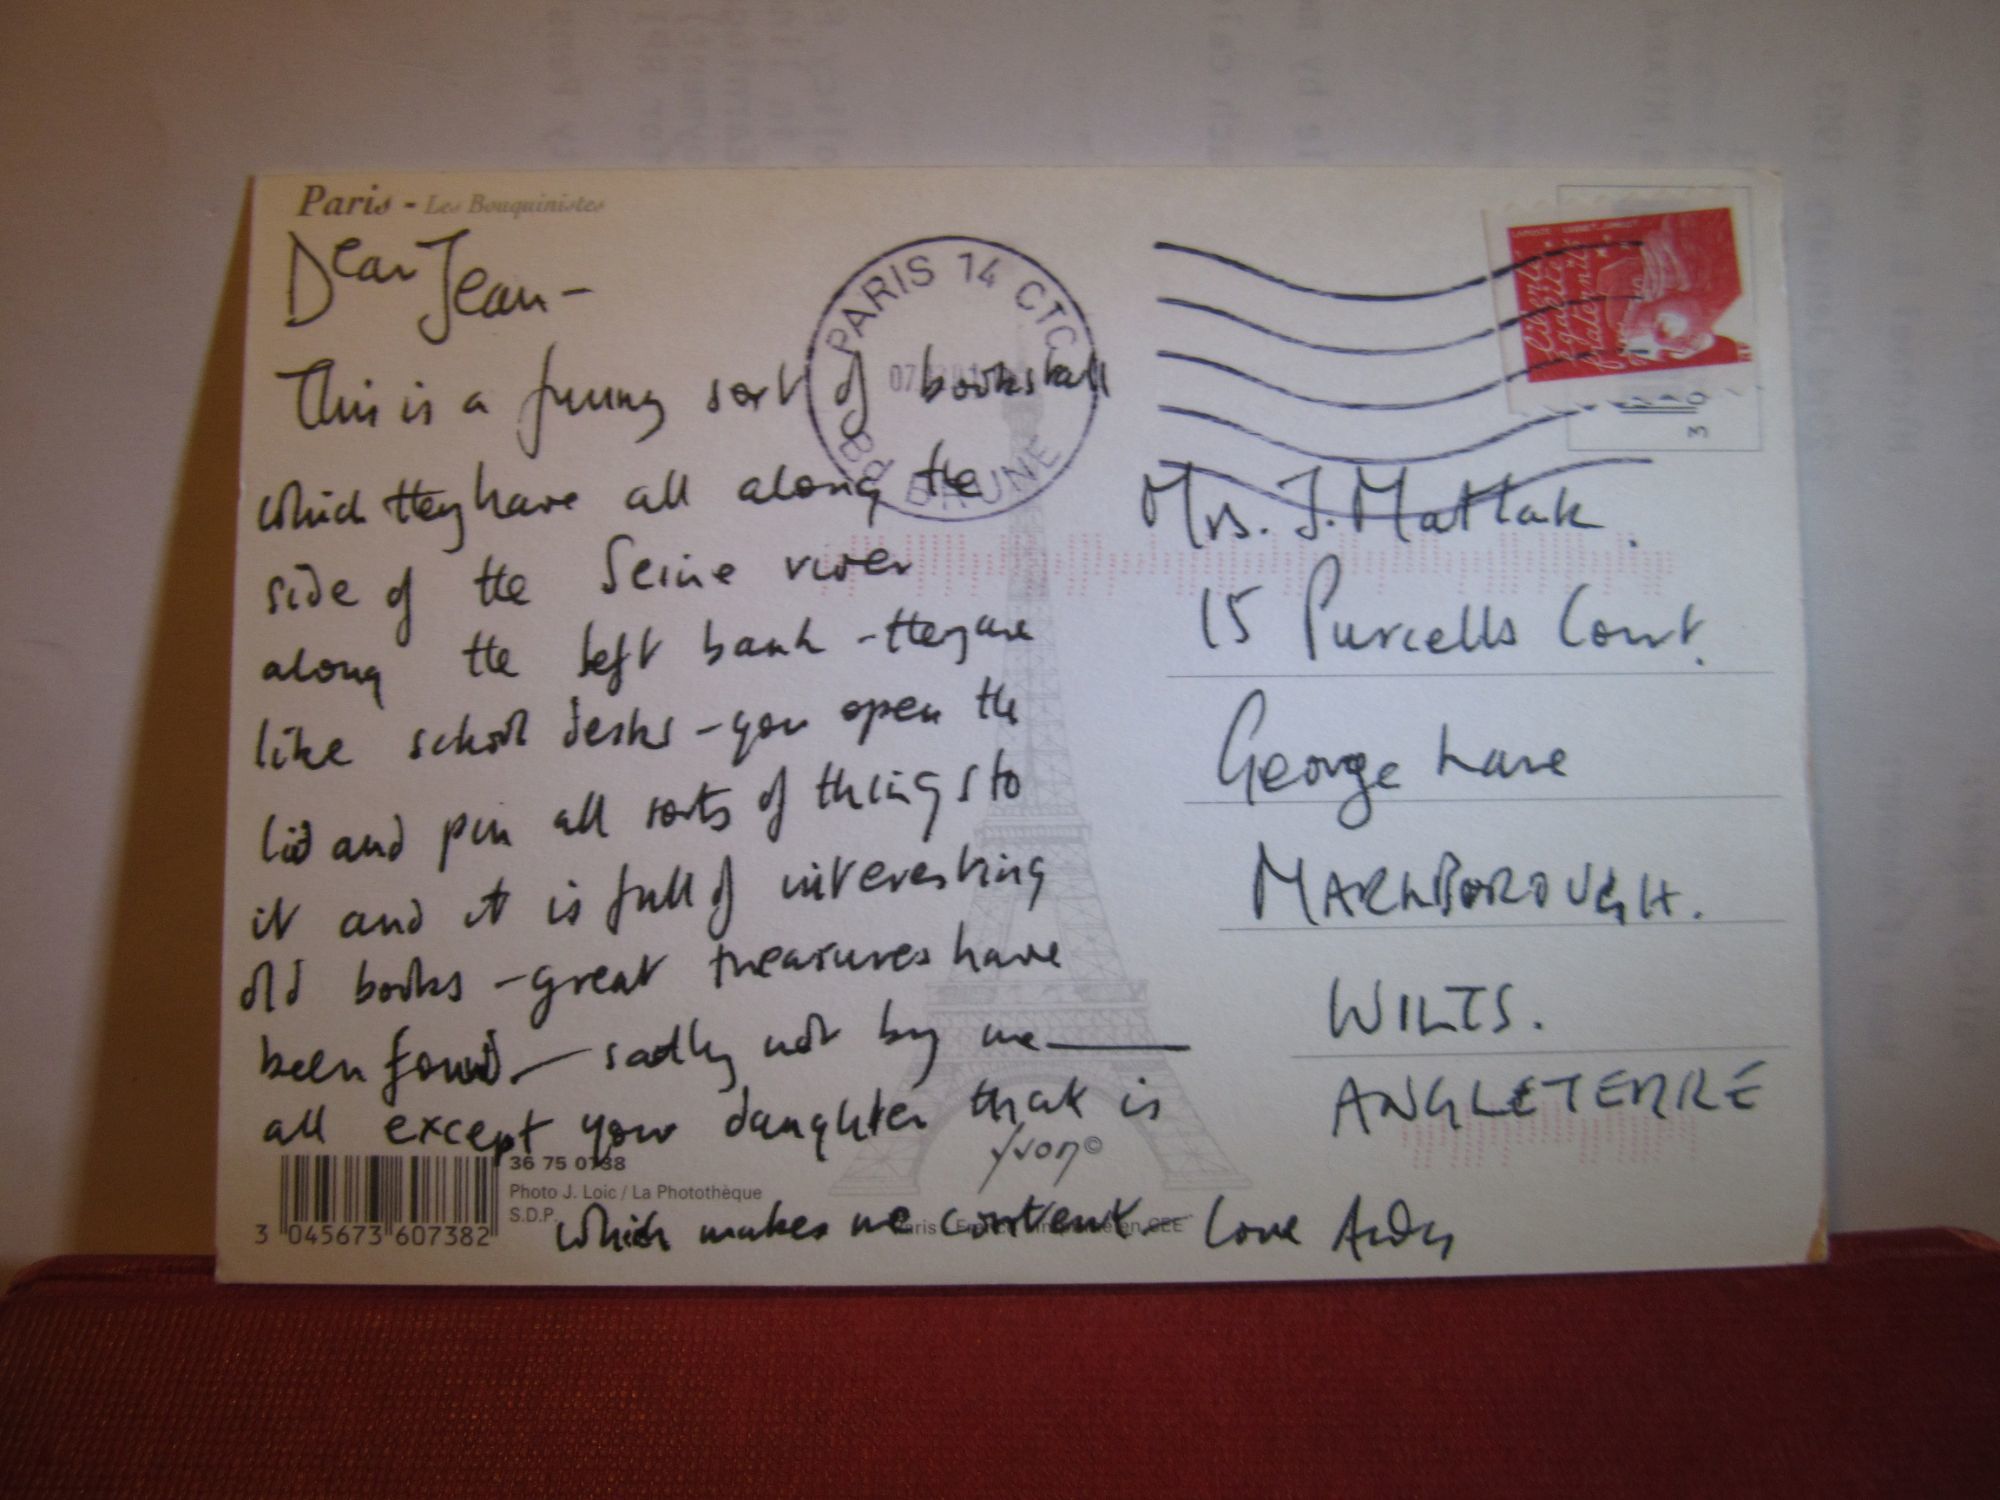 Paris - Les Bouquinistes
Dear Jean -
This is a funny sort of bookstall
which they have all along the
side of the Seine river
along the left bank - they are
like school desks - you open the
lid and pin all sorts of things to
it and it is full of interesting
old books - great treasures have
been found - sadly not by me —
all except your daughter that is
which makes me content - love Andy
PARIS 14 CTC
Bd BRUNE
Liberté
Égalité
Fraternité
Mrs. J. Matlak.
15 Purcells Court.
George Lane
MARLBOROUGH.
WILTS.
ANGLETERRE
yvon ©
36 75 0738
Photo J. Loic / La Photothèque
S.D.P.
3 045673 607382